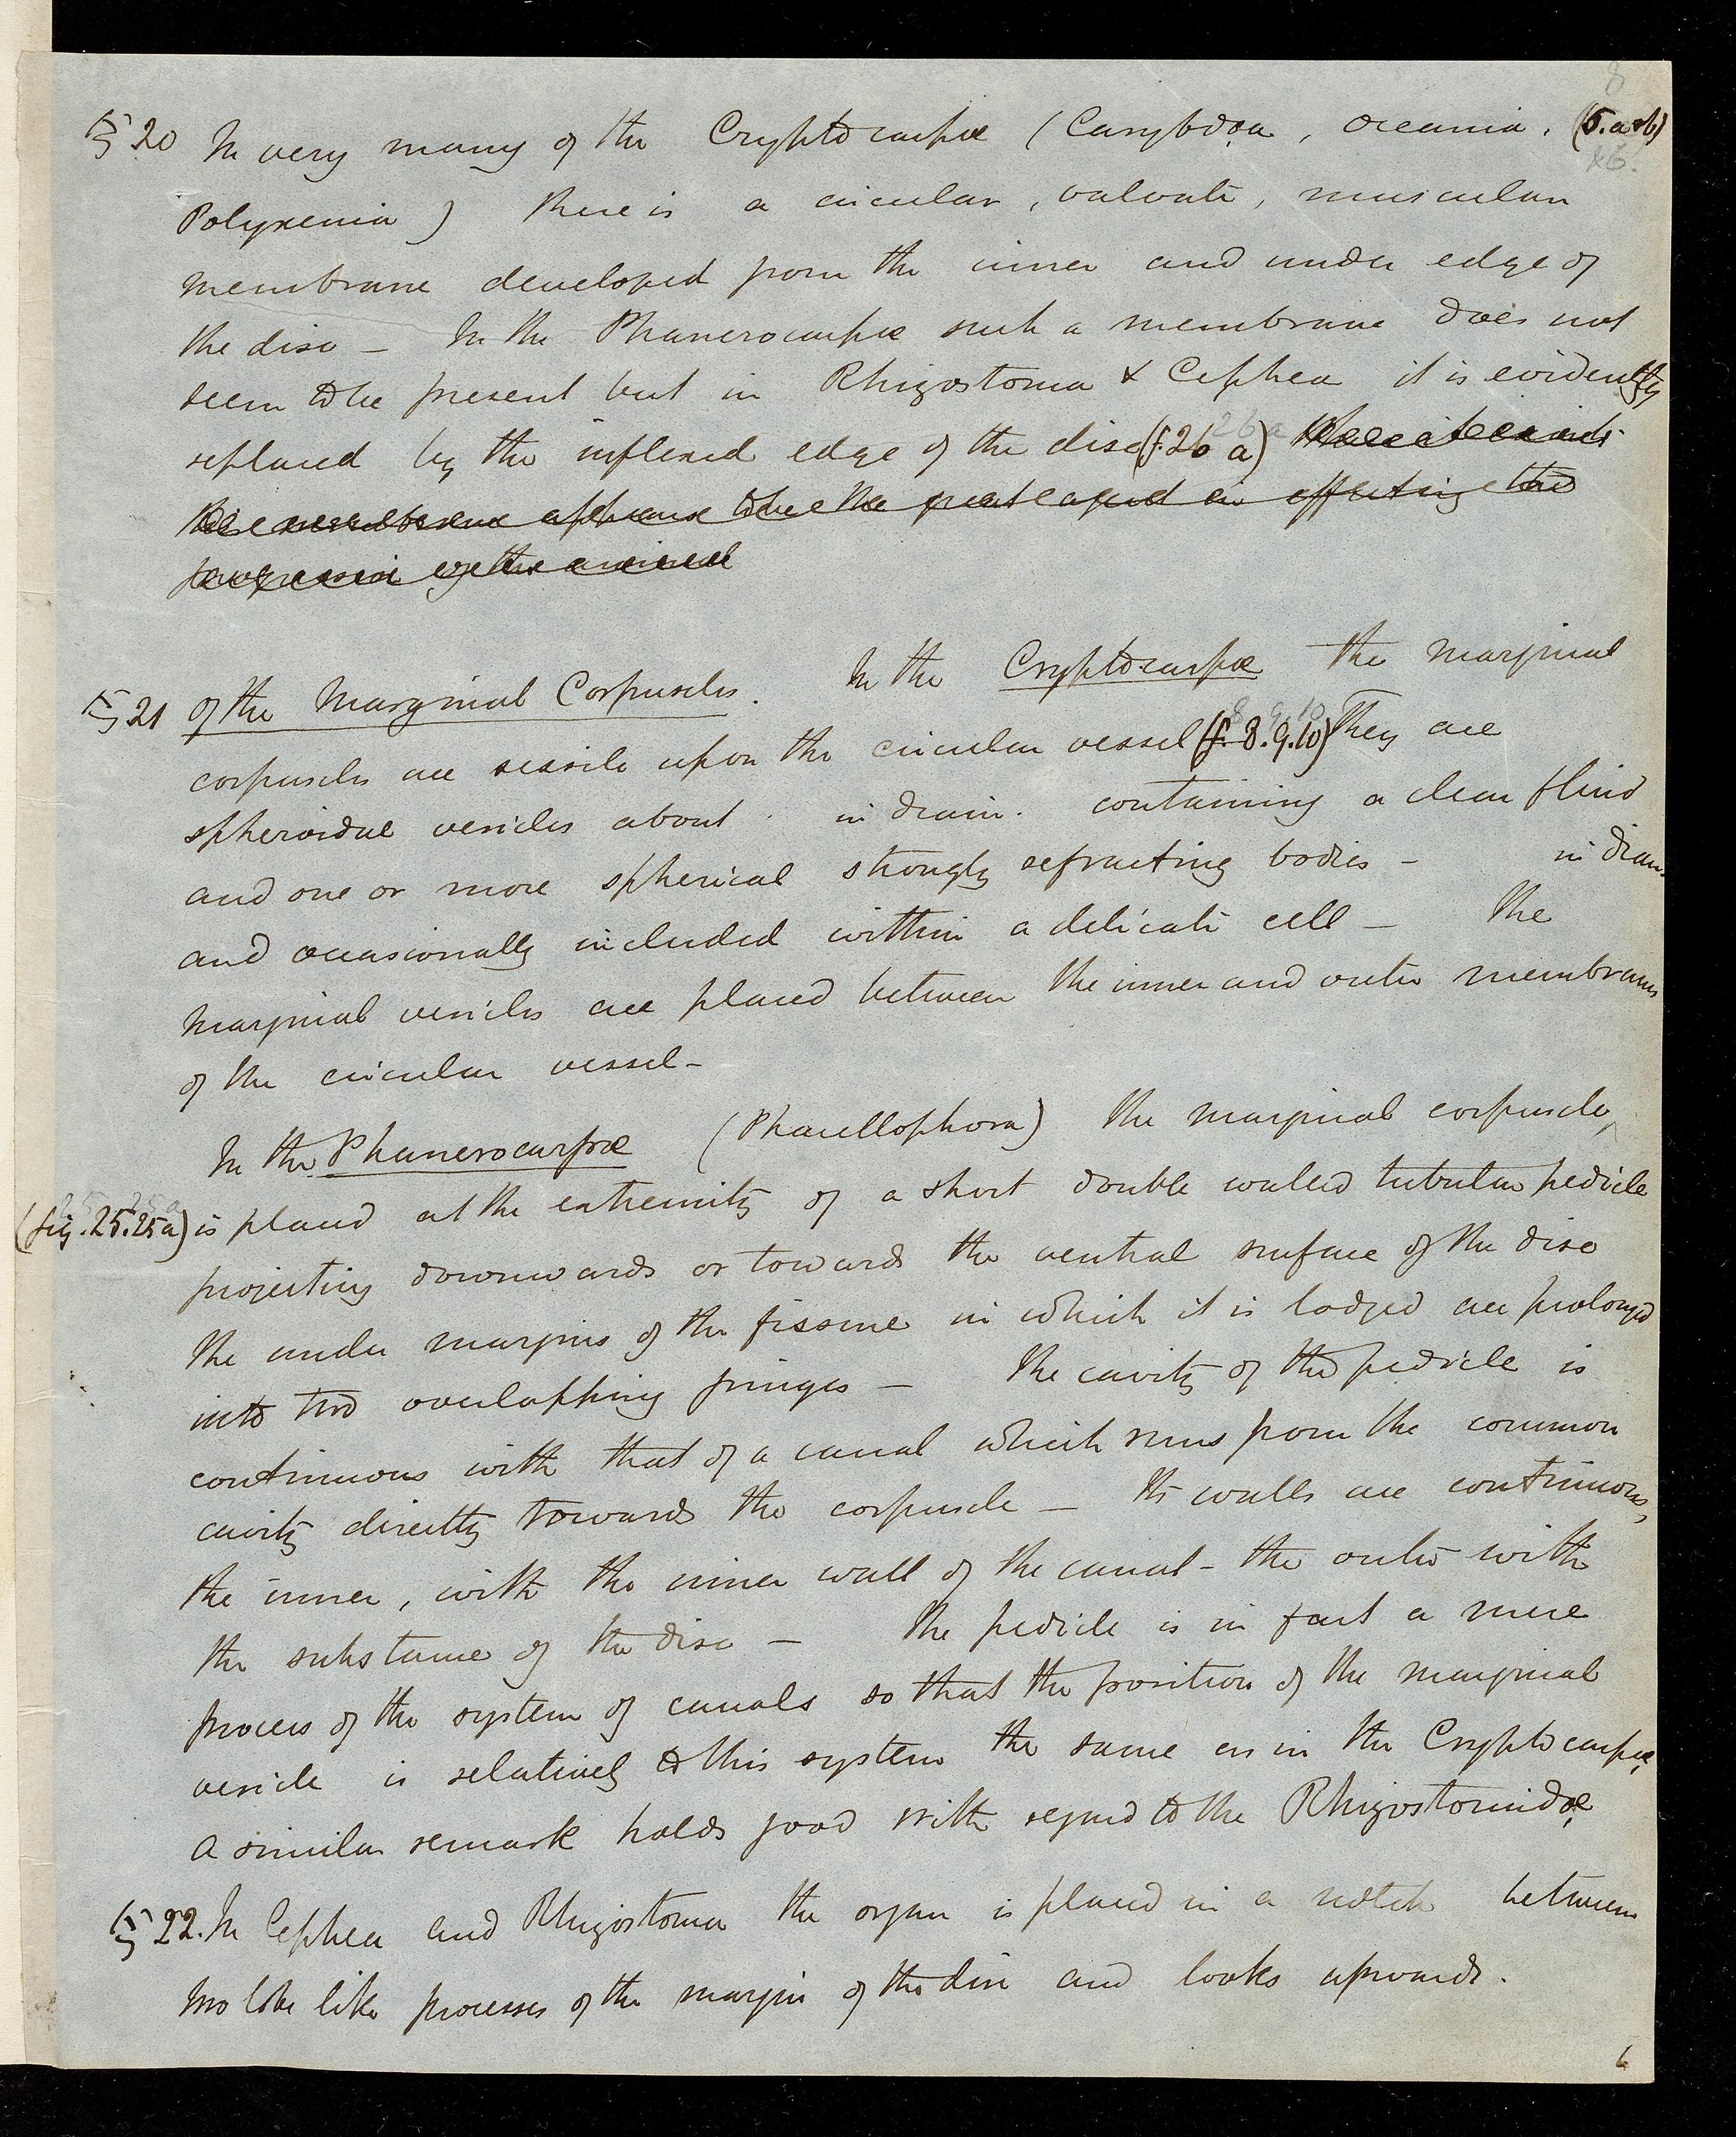 8
§ 20 In very many of the Cryptocarpæ (Carybdœa, Oceania, (5. a & b)
Polyxenia) there is a circular, valvate, muscular
membrane developed from the inner and under edge of
the disc — In the Phanerocarpæ such a membrane does not
seem to be present but in Rhizostoma & Cephea it is evidently
replaced by the inflexed edge of the disc (f. 26 a)
this membrane appears to be the great agent in effecting the
progression of the animal
§ 21 Of the Marginal Corpuscles. In the Cryptocarpæ the marginal
corpuscles are sessile upon the circular vessel (f. 8. 9. 10) They are
spheroidal vesicles about . in diam. containing a clear fluid
and one or more spherical strongly refracting bodies – in diam.
and occasionally included within a delicate cell — The
marginal vesicles are placed between the inner and outer membranes
of the circular vessel –
In the Phanerocarpæ (Phacellophora) the marginal corpuscle,
(fig. 25. 25a) is placed at the extremity of a short double walled tubular pedicle
projecting downwards or towards the ventral surface of the disc
the under margins of the fissure in which it is lodged are prolonged
into two overlapping fringes — The cavity of the pedicle is
continuous with that of a canal which runs from the common
cavity directly towards the corpuscle — Its walls are continuous,
the inner, with the inner wall of the canal – the outer with
the substance of the disc — The pedicle is in fact a mere
process of the system of canals so that the position of the marginal
vesicle is relatively to this system the same as in the Cryptocarpæ,
A similar remark holds good with regard to the Rhizostomidæ,
§ 22. In Cephea and Rhizostoma the organ is placed in a notch between
two lobe like processes of the margin of the disc and looks upwards.
6